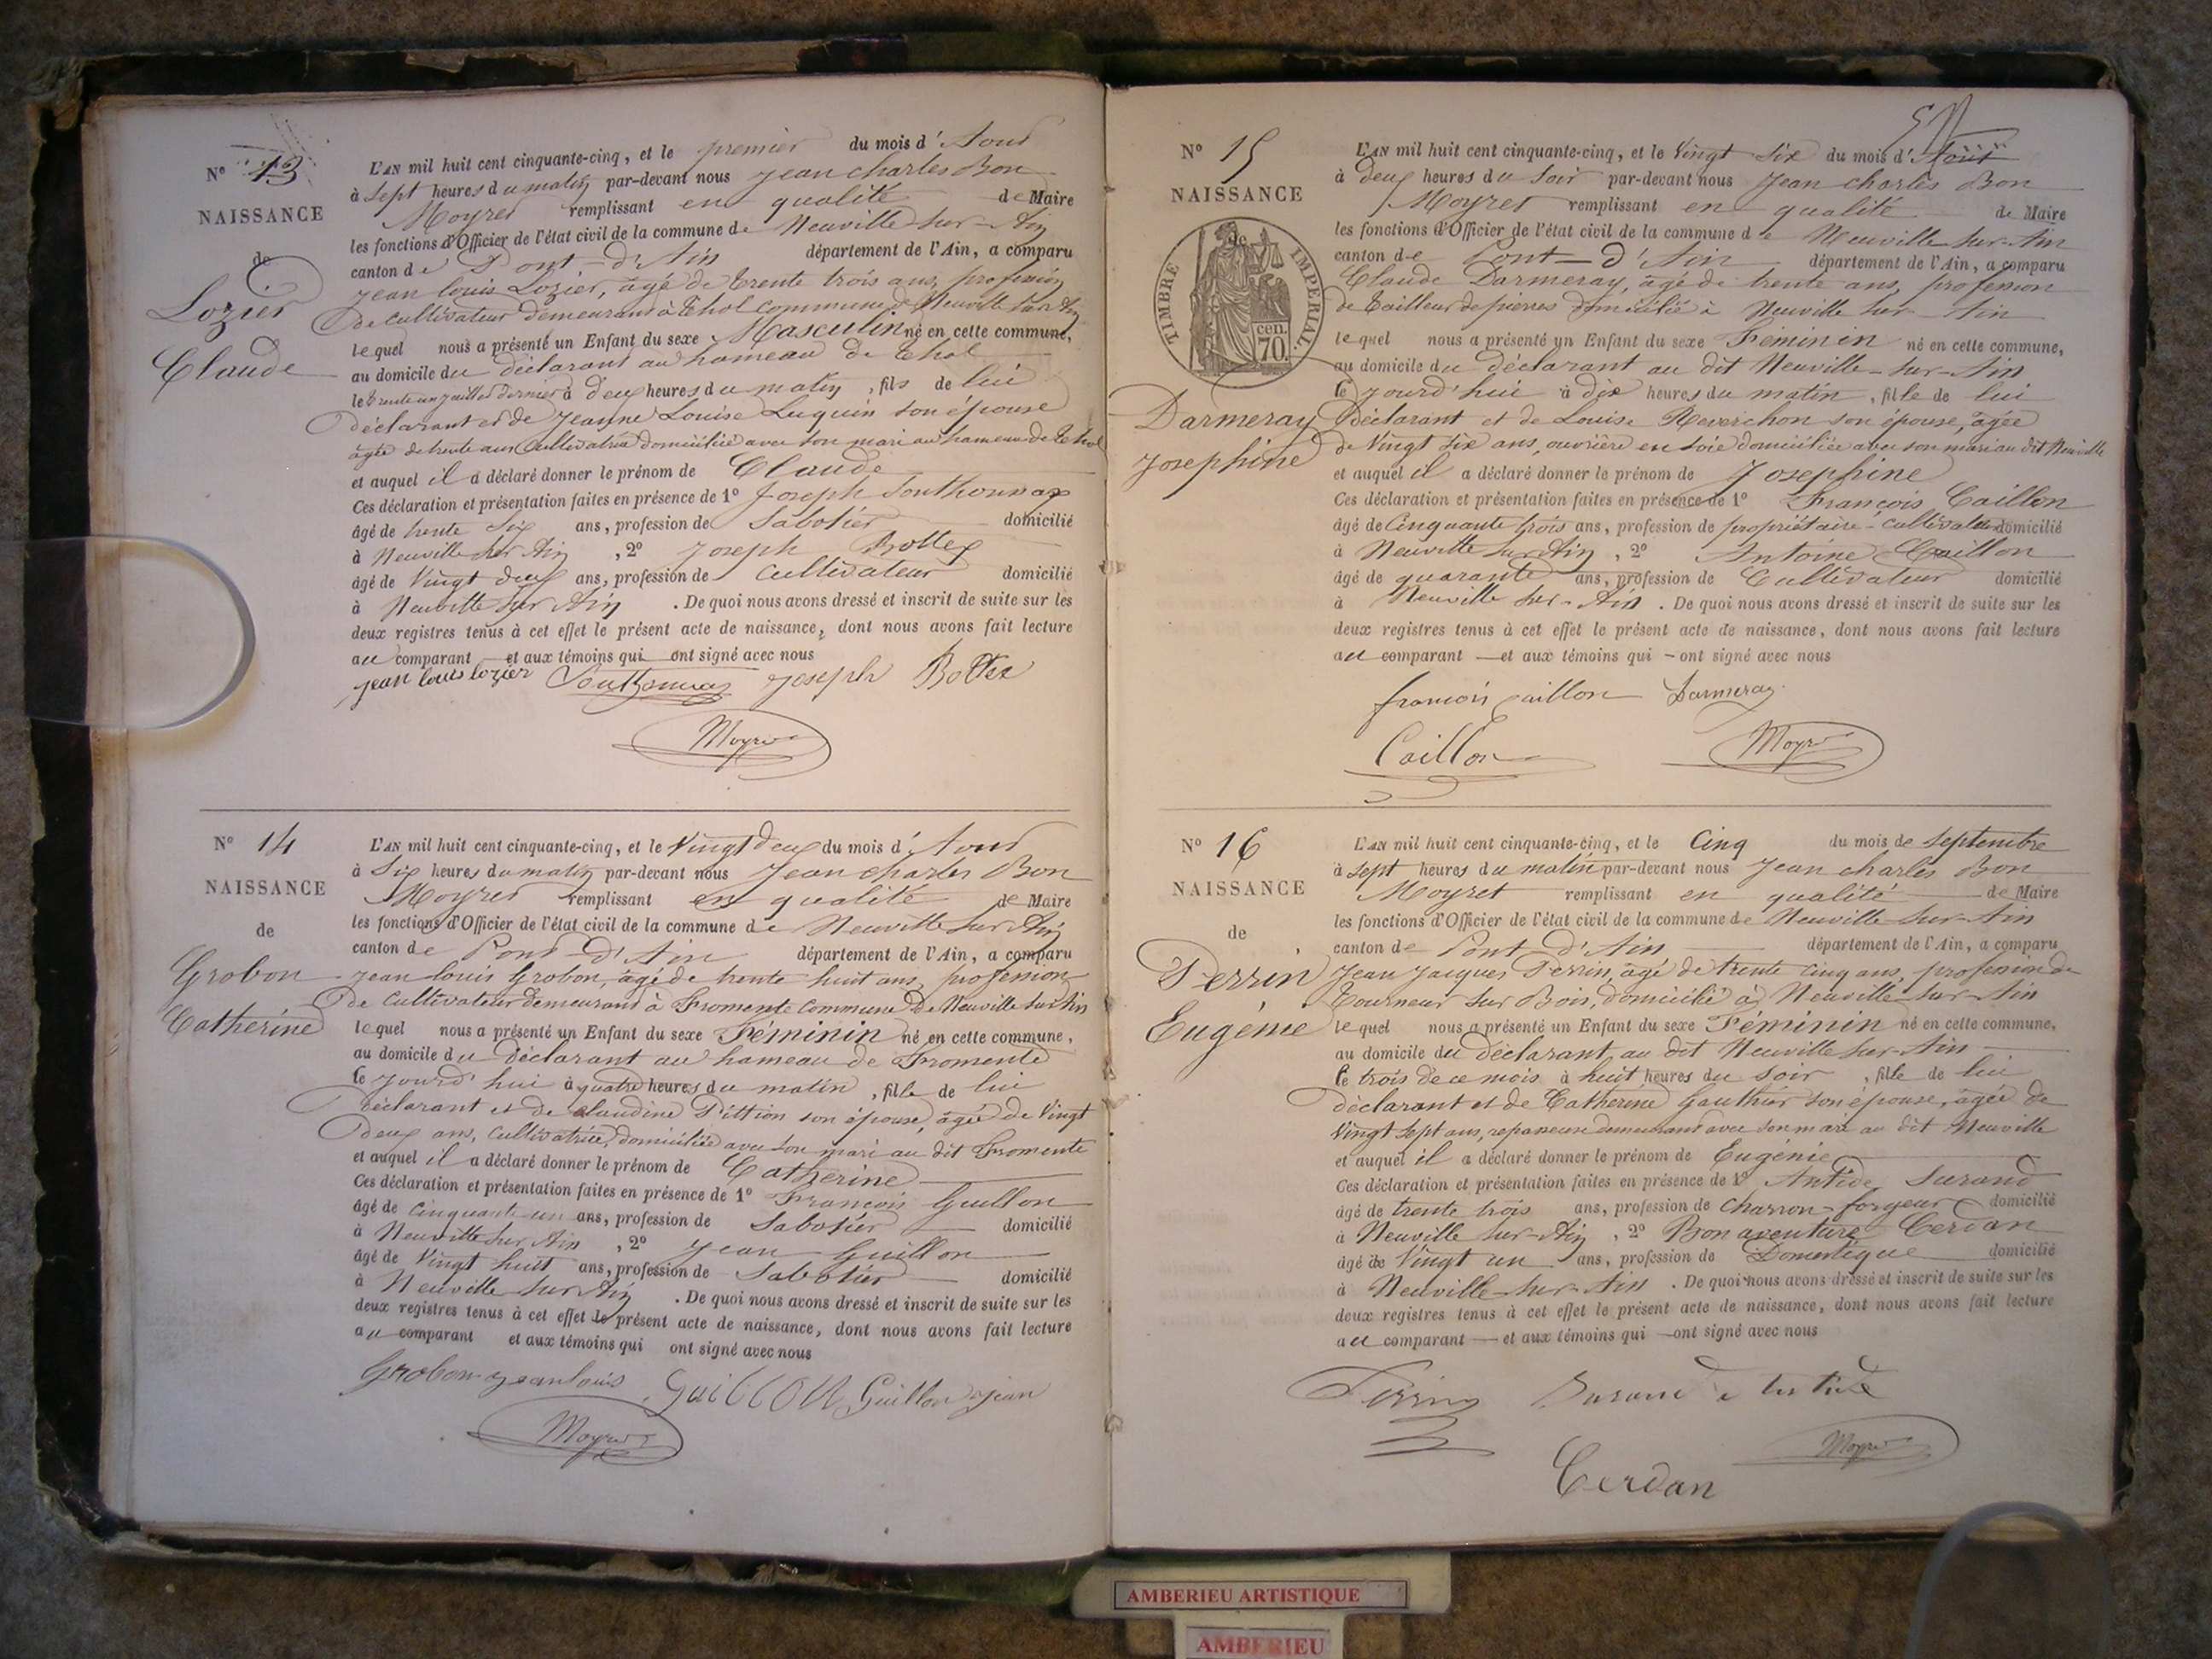 Nº 13
NAISSANCE
de
Lozier
Claude
L'AN mil huit cent cinquante-cinq, et le premier du mois d'Aout
à sept heures du matin par-devant nous Jean Charles Bon
Moyret remplissant en qualité de Maire
les fonctions d'Officier de l'état civil de la commune de Neuville sur Ain
canton de Pont-d'Ain département de l'Ain, a comparu
Jean Louis Lozier, âgé de trente trois ans, profession
de cultivateur demeurant à Thol commune de Neuville sur Ain
lequel nous a présenté un Enfant du sexe Masculin né en cette commune,
au domicile du déclarant au hameau de Thol
le trente un juillet dernier à deux heures du matin, fils de lui
déclarant et de Jeanne Louise Luquin son épouse
âgée de trente ans Cultivatrice domiciliée avec son mari au hameau de Thol
et auquel il a déclaré donner le prénom de Claude
Ces déclaration et présentation faites en présence de 1º Joseph Southonnax
âgé de trente six ans, profession de Sabotier domicilié
à Neuville sur Ain, 2º Joseph Bottex
âgé de Vingt deux ans, profession de Cultivateur domicilié
à Neuville sur Ain. De quoi nous avons dressé et inscrit de suite sur les
deux registres tenus à cet effet le présent acte de naissance, dont nous avons fait lecture
au comparant et aux témoins qui ont signé avec nous
jean louis lozier Southonnax Joseph Bottex
Moyret
Nº 14
NAISSANCE
de
Grobon
Catherine
L'AN mil huit cent cinquante-cinq, et le Vingt deux du mois d'Aout
à Six heures du matin par-devant nous Jean Charles Bon
Moyret remplissant en qualité de Maire
les fonctions d'Officier de l'état civil de la commune de Neuville sur Ain
canton de Pont-d'Ain département de l'Ain, a comparu
Jean Louis Grobon, âgé de trente huit ans, profession
de Cultivateur demeurant à Fromente Commune de Neuville sur Ain
lequel nous a présenté un Enfant du sexe Féminin né en cette commune,
au domicile du déclarant au hameau de Fromente
le jourd'hui à quatre heures du matin, fille de lui
déclarant et de claudine Pittion son épouse, âgée de Vingt
deux ans, cultivatrice, domiciliée avec son mari au dit Fromente
et auquel il a déclaré donner le prénom de Catherine
Ces déclaration et présentation faites en présence de 1º François Guillon
âgé de cinquante un ans, profession de Sabotier domicilié
à Neuville sur Ain, 2º Jean Guillon
âgé de Vingt huit ans, profession de Sabotier domicilié
à Neuville sur Ain. De quoi nous avons dressé et inscrit de suite sur les
deux registres tenus à cet effet le présent acte de naissance, dont nous avons fait lecture
au comparant et aux témoins qui ont signé avec nous
Grobon jean louis Guillon Guillon jean
Moyret
Nº 15
NAISSANCE
de
TIMBRE IMPERIAL.
cen.
70.
Darmeray
Josephine
L'AN mil huit cent cinquante-cinq, et le Vingt six du mois d'Aout
à deux heures du soir par-devant nous Jean Charles Bon
Moyret remplissant en qualité de Maire
les fonctions d'Officier de l'état civil de la commune de Neuville sur Ain
canton de Pont-d'Ain département de l'Ain, a comparu
Claude Darmeray, âgé de trente ans, profession
de tailleur de pierres domicilié à Neuville sur Ain
lequel nous a présenté un Enfant du sexe Féminin né en cette commune,
au domicile du déclarant au dit Neuville-sur-Ain
le jourd'hui à dix heures du matin, fille de lui
déclarant et de Louise Reverchon son épouse, âgée
de Vingt six ans, ouvrière en soie domiciliée avec son mari au dit Neuville
et auquel il a déclaré donner le prénom de Josephine
Ces déclaration et présentation faites en présence de 1º François Caillon
âgé de Cinquante trois ans, profession de propriétaire-cultivateur domicilié
à Neuville sur Ain, 2º Antoine Caillon
âgé de quarante ans, profession de Cultivateur domicilié
à Neuville sur-Ain. De quoi nous avons dressé et inscrit de suite sur les
deux registres tenus à cet effet le présent acte de naissance, dont nous avons fait lecture
au comparant et aux témoins qui ont signé avec nous
francois caillon Darmeray
Caillon Moyret
Nº 16
NAISSANCE
de
Perrin
Eugénie
L'AN mil huit cent cinquante-cinq, et le Cinq du mois de Septembre
à sept heures du matin par-devant nous Jean charles Bon
Moyret remplissant en qualité de Maire
les fonctions d'Officier de l'état civil de la commune de Neuville sur-Ain
canton de Pont-d'Ain département de l'Ain, a comparu
Jean Jacques Perrin, âgé de trente cinq ans, profession de
tourneur sur Bois, domicilié à Neuville-sur-Ain
lequel nous a présenté un Enfant du sexe Féminin né en cette commune,
au domicile du déclarant au dit Neuville sur-Ain
le trois de ce mois à huit heures du soir, fille de lui
déclarant et de Catherine Gauthier son épouse, âgée de
Vingt sept ans, repasseuse demeurant avec son mari au dit Neuville
et auquel il a déclaré donner le prénom de Eugénie
Ces déclaration et présentation faites en présence de 1º Antide Surand
âgé de trente trois ans, profession de charron-forgeur domicilié
à Neuville sur-Ain, 2º Bonaventure Cerdan
âgé de Vingt un ans, profession de Domestique domicilié
à Neuville-sur-Ain. De quoi nous avons dressé et inscrit de suite sur les
deux registres tenus à cet effet le présent acte de naissance, dont nous avons fait lecture
au comparant et aux témoins qui ont signé avec nous
Perrin Surand antide
Moyret
Cerdan
AMBERIEU ARTISTIQUE
AMBERIEU